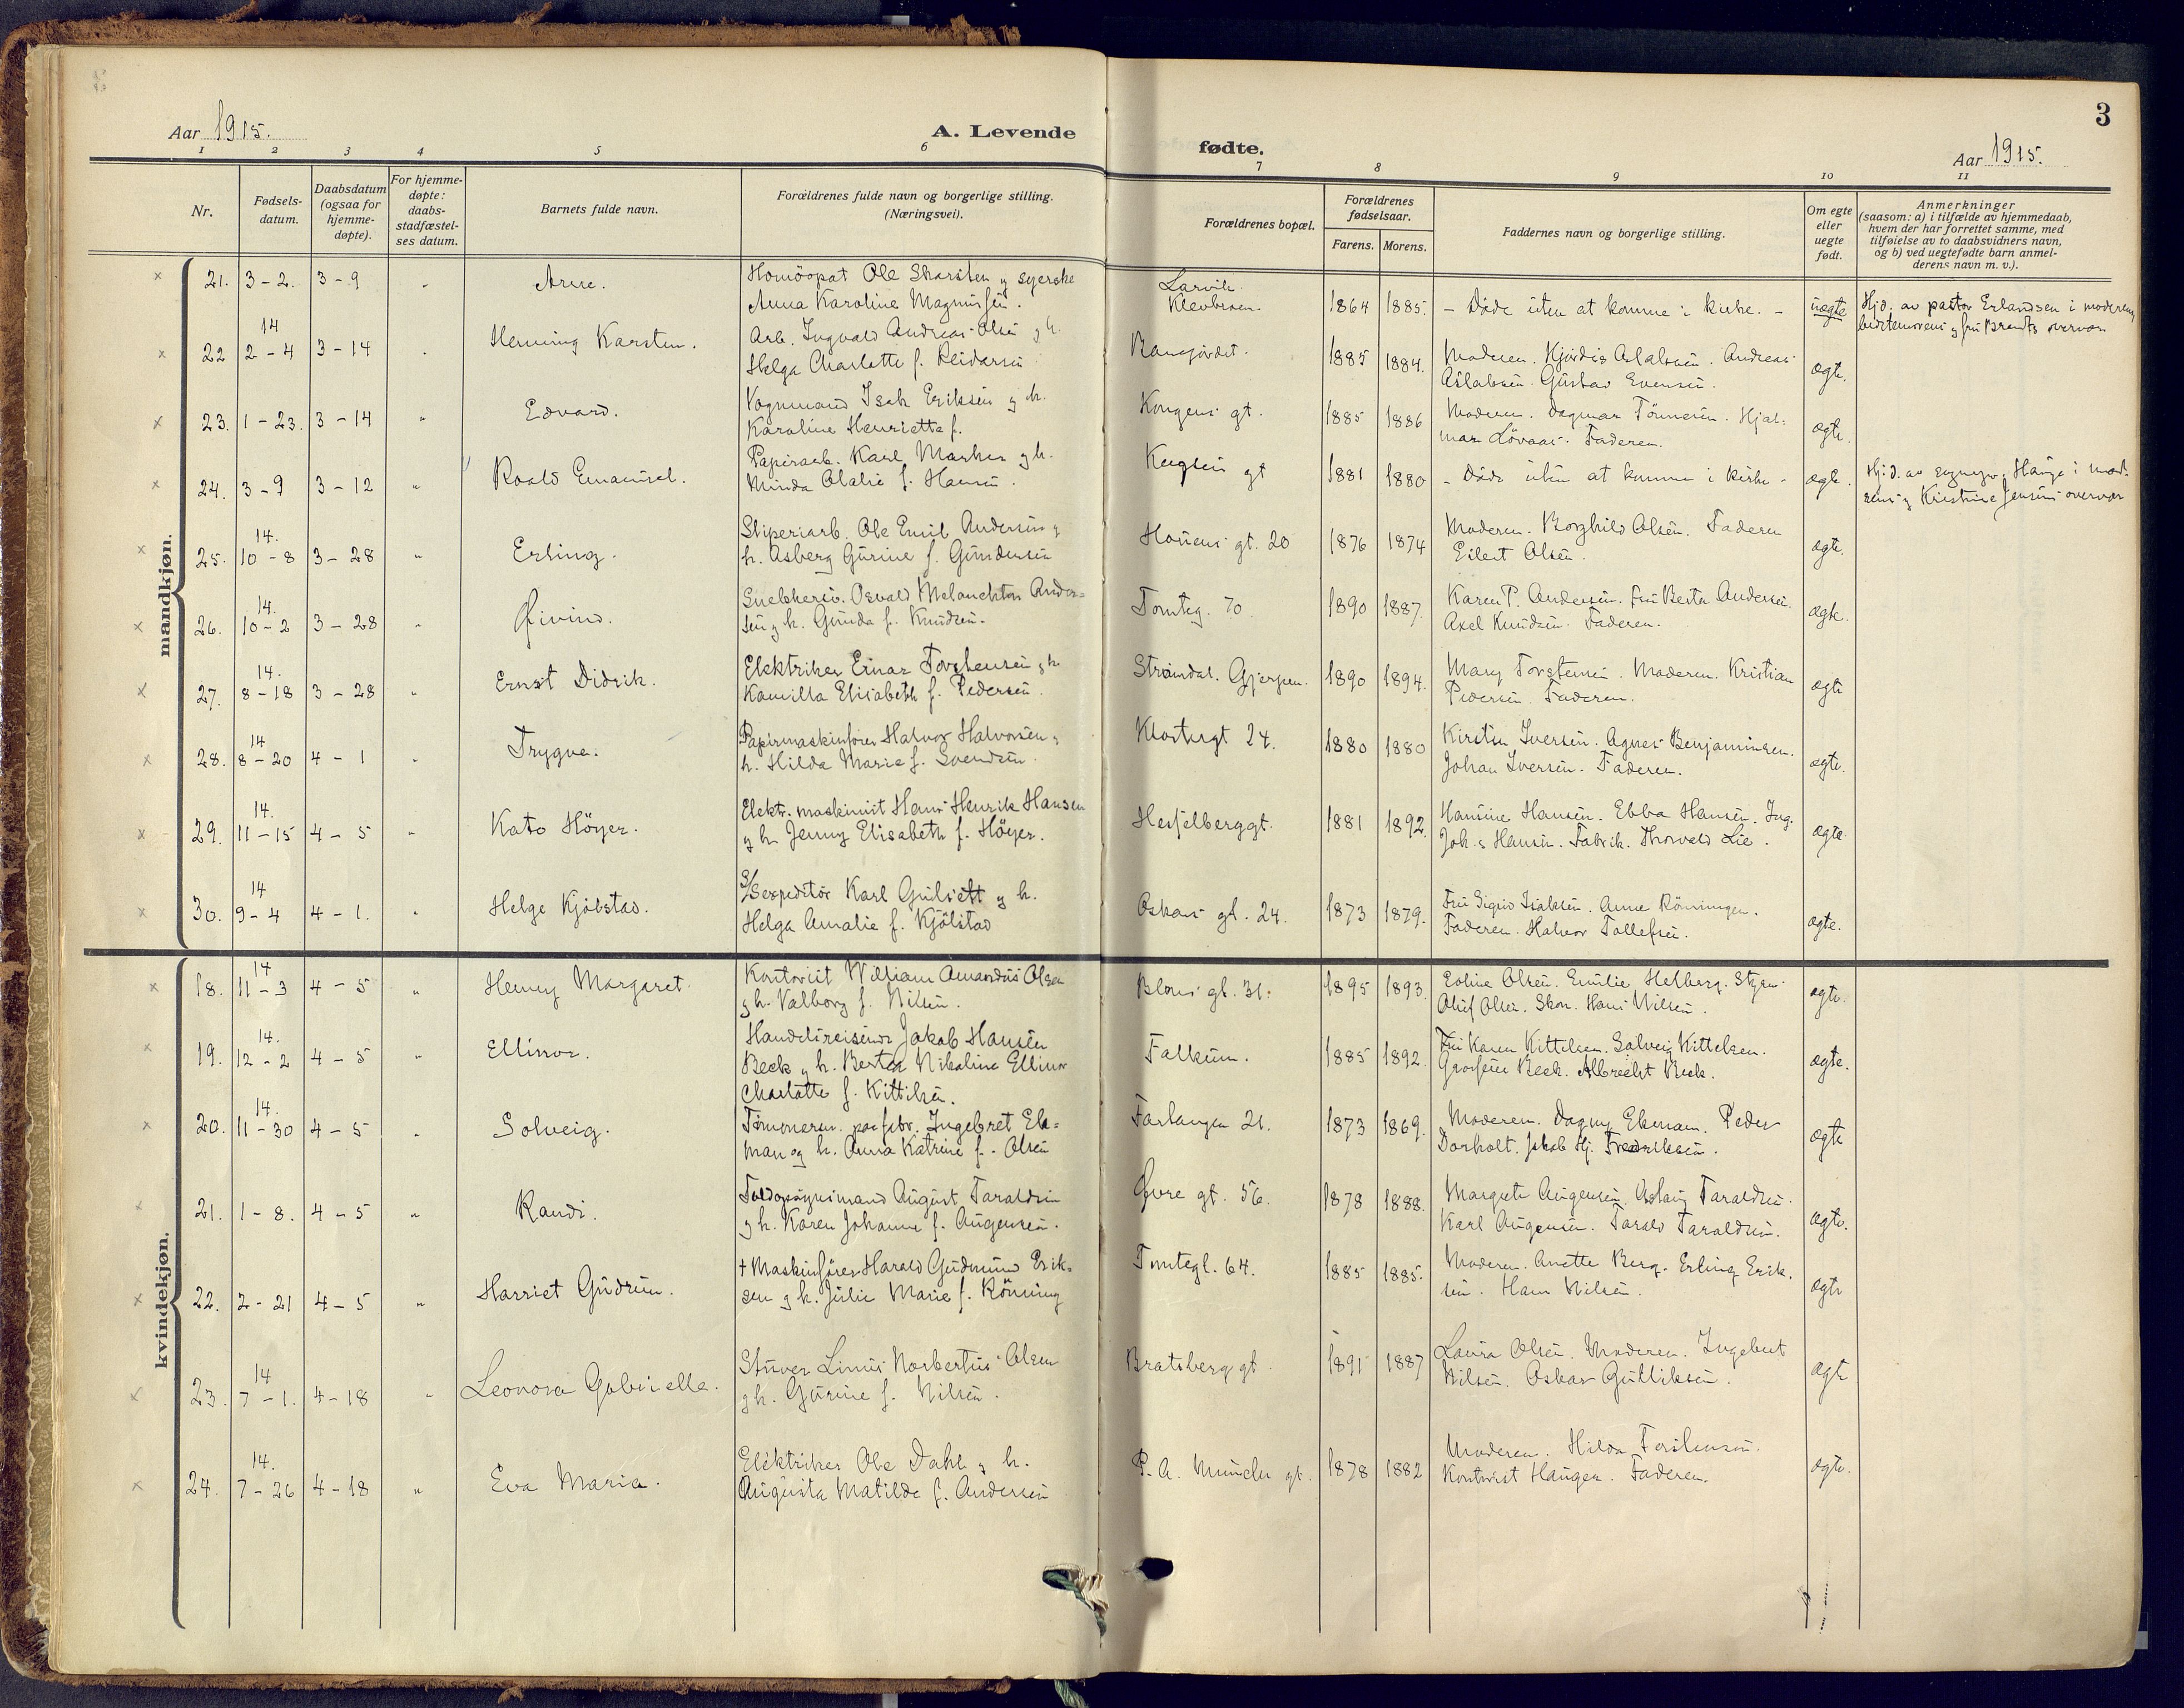 3
Aar 1915.
A. Levende
fødte.
Aar 1915.
1 2 3 4 5 6 7 8 9 10 11
Nr.
Fødsels-
datum.
Daabsdatum
(ogsaa for
hjemme-
døpte).
For hjemme-
døpte:
daabs-
stadfæstel-
ses datum.
Barnets fulde navn.
Forældrenes fulde navn og borgerlige stilling.
(Næringsvei).
Forældrenes bopæl.
Forældrenes
fødselsaar.
Farens. Morens.
Faddernes navn og borgerlige stilling.
Om egte
eller
uegte
født.
Anmerkninger
(saasom: a) i tilfælde av hjemmedaab,
hvem der har forrettet samme, med
tilføielse av to daabsvidners navn,
og b) ved uegtefødte barn anmel-
derens navn m. v.).
mandkjøn.
21. 3-2. 3-9 " Arne.
Homöopat Ole Skarsten og syerske
Anna Karoline Magnussen.
Larvik.
Klevbrsen.
1864 1885. - Døde uten at komme i kirke. - uegte
Hjd. av pastor Erlandsen i moderens
og fru Brandts overvær
22 14 2-4 3-14 " Henning Karsten.
Arb. Ingvald Andreas Olsen g h.
Helga Charlotte f. Reidarsen
Bansjordet.
1885 1884. Moderen. Hjördis Aslaksen. Andreas
Aslaksen. Gustav Evensen. ægte.
23. 1-23. 3-14 " Edvard.
Vognmand Isak Eriksen g h.
Karoline Henriette f.
Kongens gt.
1885 1886 Moderen. Dagmar Tönnesen. Hjal-
mar Lövaas. Faderen. ægte.
24. 3-9 3-12 " Roald Emanuel.
Papirarb. Karl Marker g h.
Minda Olalie f. Hansen.
gt
1881 1880 - Døde uten at komme i kirke - ægte.
Hjd. av Hauge i mod-
rens g Kirstine Jensens overvær
25. 14. 10-8 3-28 " Erling.
Sliperiarb. Ole Emil Andersen g
h. Asberg Gurine f. Gundersen
Hauens gt. 20
1876 1874 Moderen. Borghild Olsen. Faderen
Eilert Olsen. ægte.
26. 14. 10-2 3-28 " Øivind.
Snekkersv. Osvald Melanchton Ander-
sen g h. Gunda f. Knudsen.
Tomteg. 70.
1890 1887. Karen P. Andersen. Fru Berta Andersen.
Axel Knudsen. Faderen. ægte.
27. 14. 8-18 3-28 " Ernst Didrik.
Elektriker Einar Torstensen g h
Kamilla Elisabeth f. Pedersen.
Strömdal. Gjerpen.
1890 1894. Mary Torstensen. Moderen. Kristian
Pedersen. Faderen. ægte
28. 14 8-20 4-1 " Trygve.
Papirmaskinfører Halvor Halvorsen g
h. Hilda Marie f. Svendsen
Klostergt 24.
1880 1880 Kirstin Iversen. Agnes Benjaminsen.
Johan Iversen. Faderen. ægte.
29. 14. 11-15 4-5 " Kato Höyer.
Elekt. maskinist Hans Henrik Hansen
g h. Jenny Elisabeth f. Höyer.
Hesselberggt.
1881 1892. Hansine Hansen. Ebba Hansen. Ing.
Joh. s Hansen. Fabrik. Thorvald Lie. ægte.
30. 14 9-4 4-1. " Helge Kjölstad.
S/Sexpeditör Karl Gulsett g h.
Helga Amalie f. Kjölstad
Oskars gt. 24.
1873 1879. Fru Sigrid Isaksen. Anne Rönningen.
Faderen. Halvor Tollefsen. ægte.
kvindekjøn.
18. 14 11-3 4-5 " Henny Margaret.
Kontorist William Amandus Olsen
g h. Valborg f. Nilsen.
Bloms gt. 31.
1895 1893. Eoline Olsen. Emilie Helberg. Styrm.
Oluf Olsen. Skom. Hans Nilsen. ægte.
19. 14. 12-2 4-5 " Ellinor.
Handelsreisende Jakob Hansen
Beck g h. Berta Nikoline Ellinor
Charlotte f. Kittilsen.
Falkum.
1885 1892. Fru Karen Kittelsen. Solveig Kittelsen.
Beck. Albrecht Beck. ægte.
20. 14. 11-30 4-5 " Solveig.
Tömmerm. paa fabr. Ingebret Ek-
man og h. Anna Katrine f. Olsen
Forlangen 21.
1873 1869. Moderen. Dagny Ekman. Peder
Dorholt. Jakob Hj. Fredriksen. ægte
21. 1-8. 4-5 " Randi.
Toldopsynsmand August Taraldsen
g h. Karen Johanne f. Augensen.
Øvre gt. 56.
1878 1888. Margrete Augensen. Aslaug Taraldsen.
Karl Augensen. Tarald Taraldsen. ægte.
22. 2-21 4-5 " Harriet Gudrun.
† Maskinfører Harald Gudmund Erik-
sen g h. Julie Marie f. Rönning
Tomtegt. 64.
1885 1885. Moderen. Anette Berg. Erling Erik-
sen. Hans Nilsen. ægte
23. 14 7-1. 4-18 " Leonora Gabrielle.
Stuver Linus Norbertus Olsen
g h. Gurine f. Nilsen.
Bratsberg gt.
1891 1887 Laura Olsen. Moderen. Ingebret
Nilsen. Oskar Gulliksen. ægte
24. 14. 7-26 4-18 " Eva Maria.
Elektriker Ole Dahl g h.
Augusta Matilde f. Andersen
P. A. Munchs gt.
1878 1882 Moderen. Hilda Torstensen.
Kontorist Haugen. Faderen. ægte.